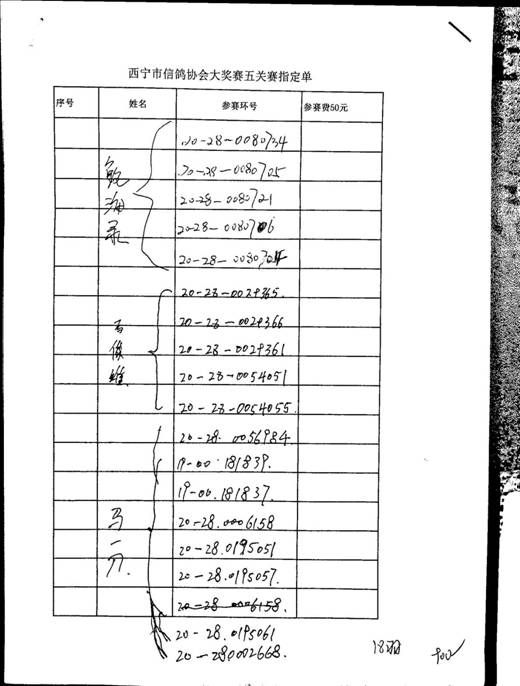 西宁市信鸽协会大奖赛五关赛指定单
序号 姓名 参赛环号 参赛费50元
20-28-0080734
20-28-0080705
20-28-0080721
20-28-0080706
20-28-0080704
20-28-0029365.
20-28-0029366
20-28-0029361
马俊雄
20-28-0054051
20-28-0054055.
20-28.0056984.
19-00.181839.
19-00.181837.
20-28.0006158
马一
20-28.0195051
20-28.0195057.
20-28-0006158.
20-28.0195061
20-280002668.
18羽 900